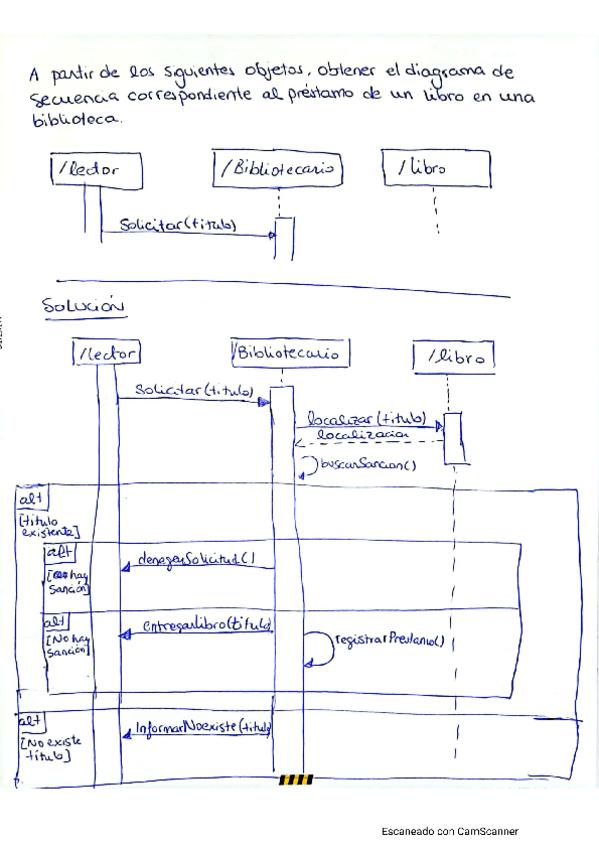 A partir de los siguientes objetos, obtener el diagrama de
secuencia correspondiente al préstamo de un libro en una
biblioteca.
/lector
/Bibliotecario
/libro
Solicitar(titulo)
SOLUCIÓN
/lector
/Bibliotecario
/libro
Solicitar(titulo)
localizar(titulo)
localizacion
buscarSancion()
alt
[titulo
existente]
alt
denegarSolicitud()
[hay
sanción]
alt
entregarLibro(titulo)
[No hay
sanción]
registrarPrestamo()
alt
InformarNoexiste(titulo)
[No existe
título]
Escaneado con CamScanner